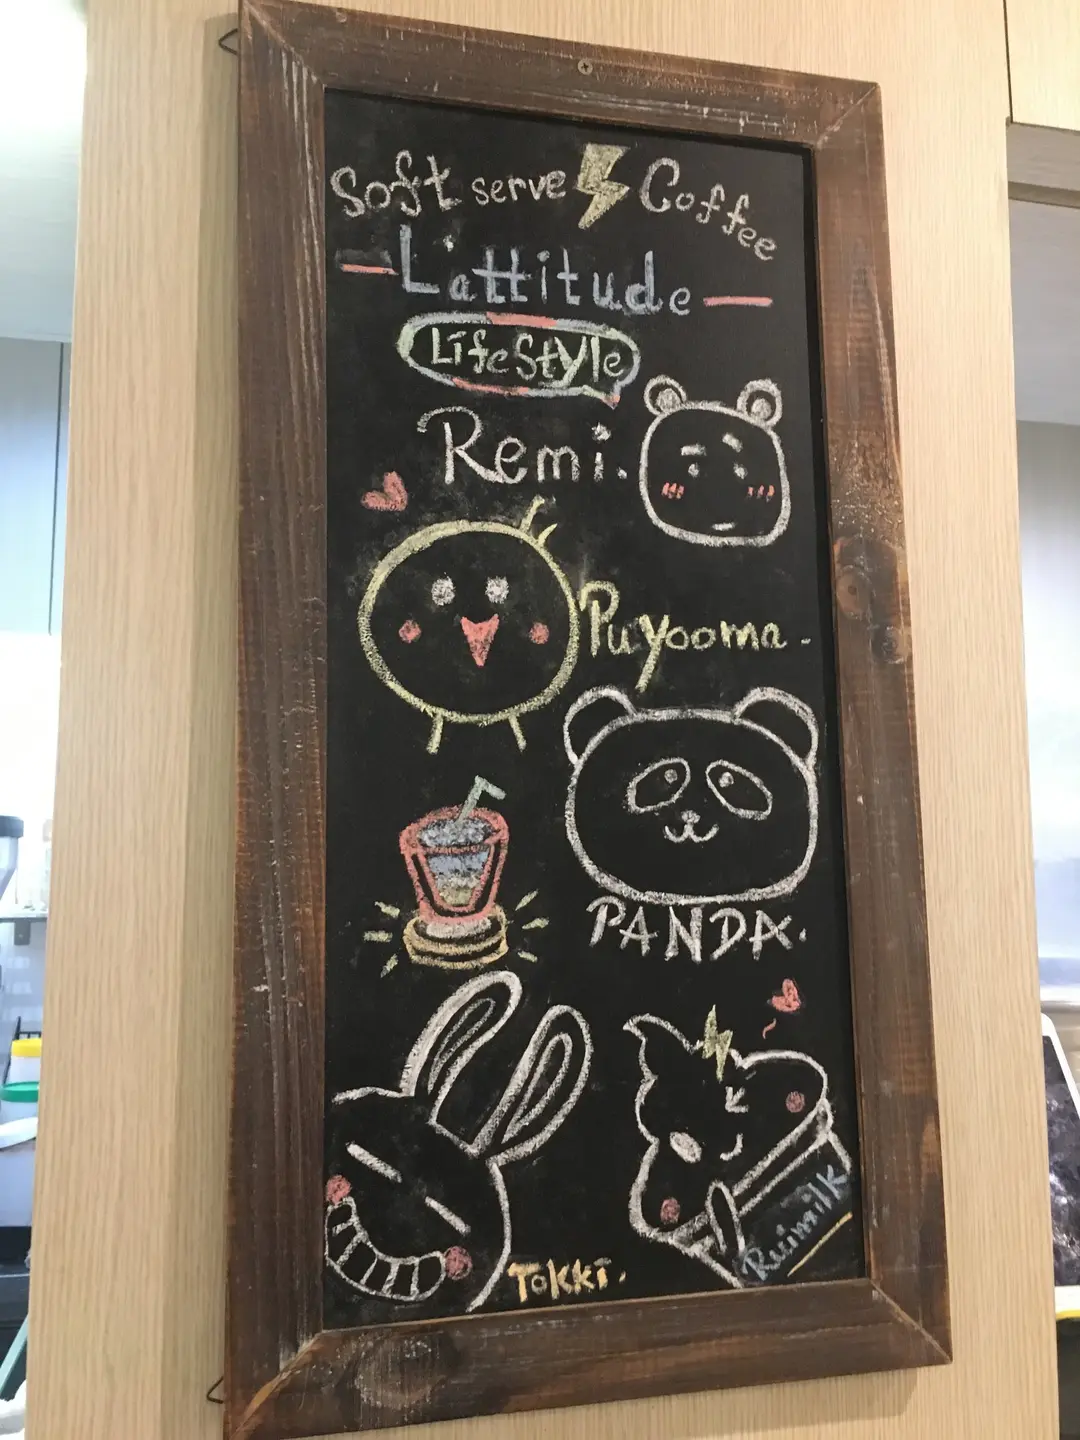 Soft serve Coffee
Lattitude
LifeStyle
Remi.
Puyooma.
PANDA.
Ruimilk
Tokki.